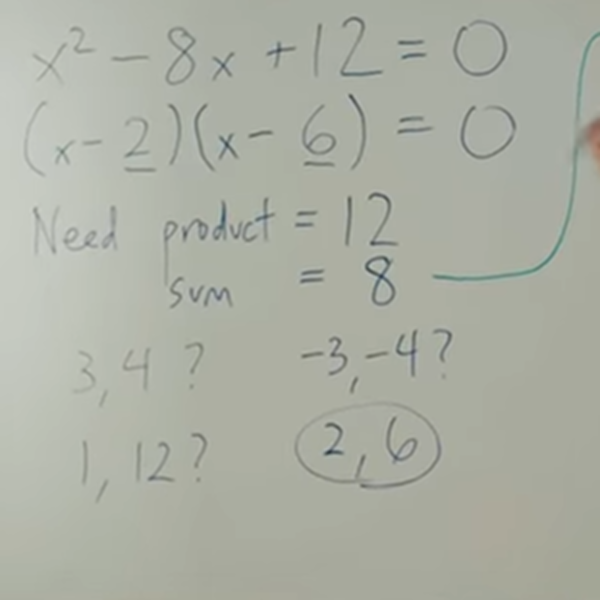 x² - 8x + 12 = 0
(x - 2)(x - 6) = 0
Need product = 12
sum = 8
3, 4 ? -3, -4 ?
1, 12 ? 2, 6